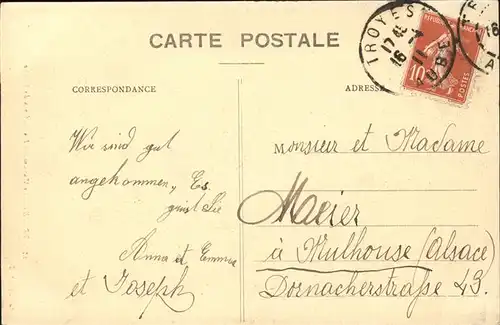 CARTE POSTALE
CORRESPONDANCE
ADRESSE
TROYES
17 45
16 4
11
AUBE
10
POSTES
Wir sind gut
angekommen, Es
grüst Sie
Anna et Emma
et Joseph
Monsieur et Madame
Macier
à Mulhouse (Alsace)
Dornacherstraße 43.